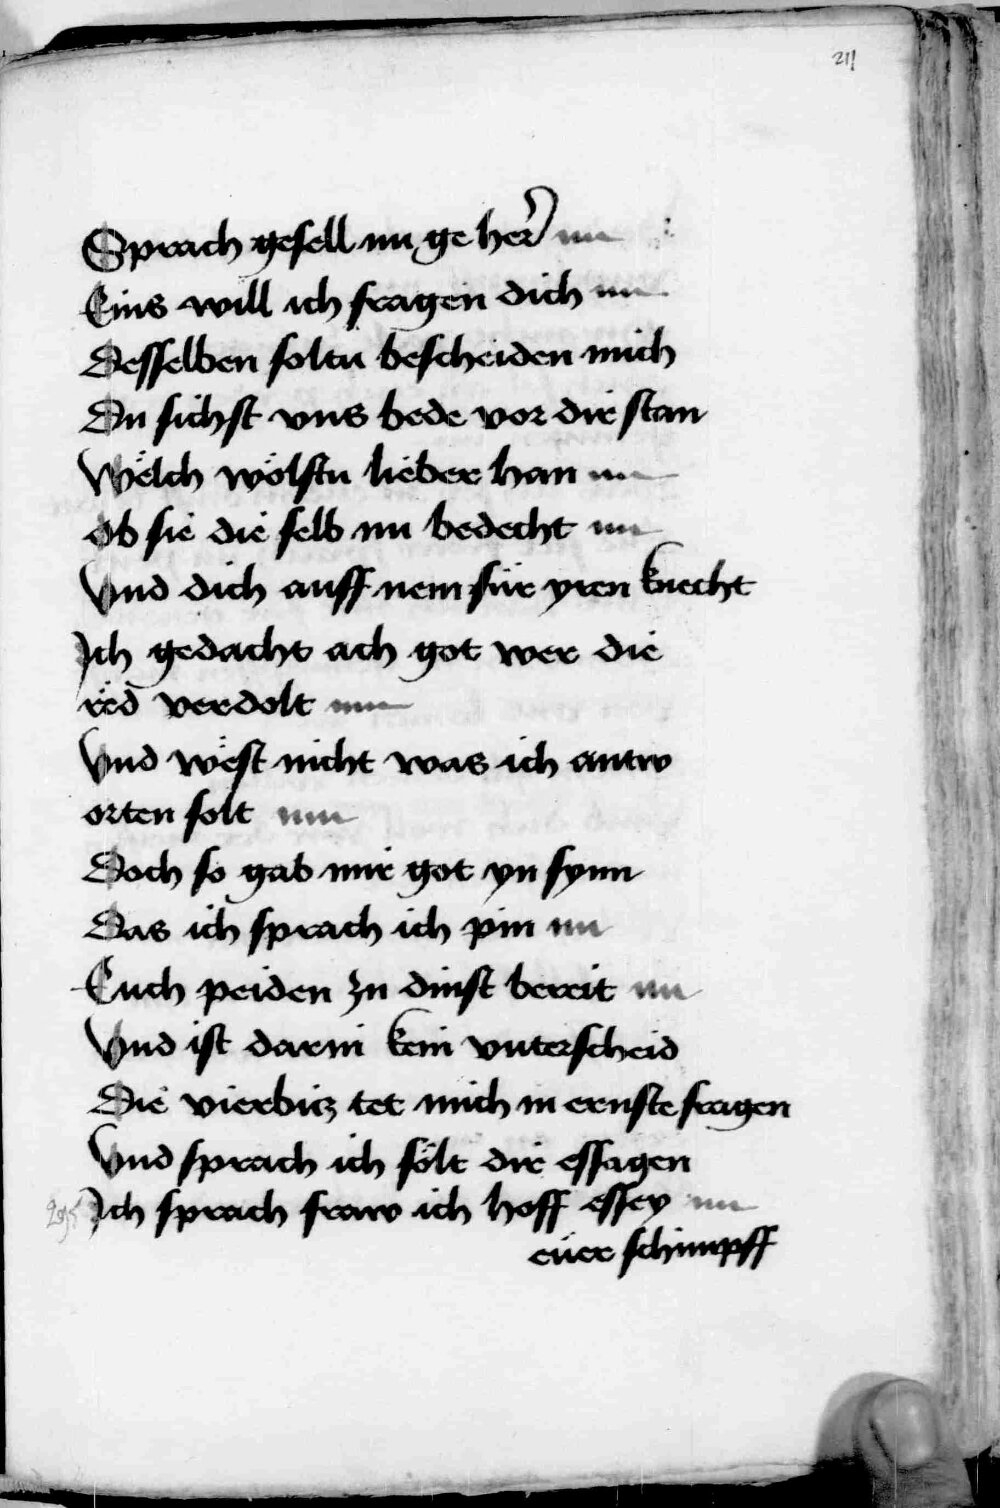 211
Sprach gesell nu ge her
Eins will ich fragen dich
Desselben soltu bescheiden mich
Du sichst vns bede vor dir stan
Wëlch wölstu lieber han
Ob sie die selb nu bedecht
Vnd dich auff nem für yren knecht
Ich gedacht ach got wer die
rëd verdolt
Vnd wëst nicht was ich antw
orten solt
Doch so gab mir got yn synn
Das ich sprach ich pin
Euch peiden zu dinst bereit
Vnd ist darin kein vnterscheid
Die vierbicz tet mich in ernste fragen
Vnd sprach ich sölt dir essagen
Ich sprach fraw ich hoff essey
eüer schimpff